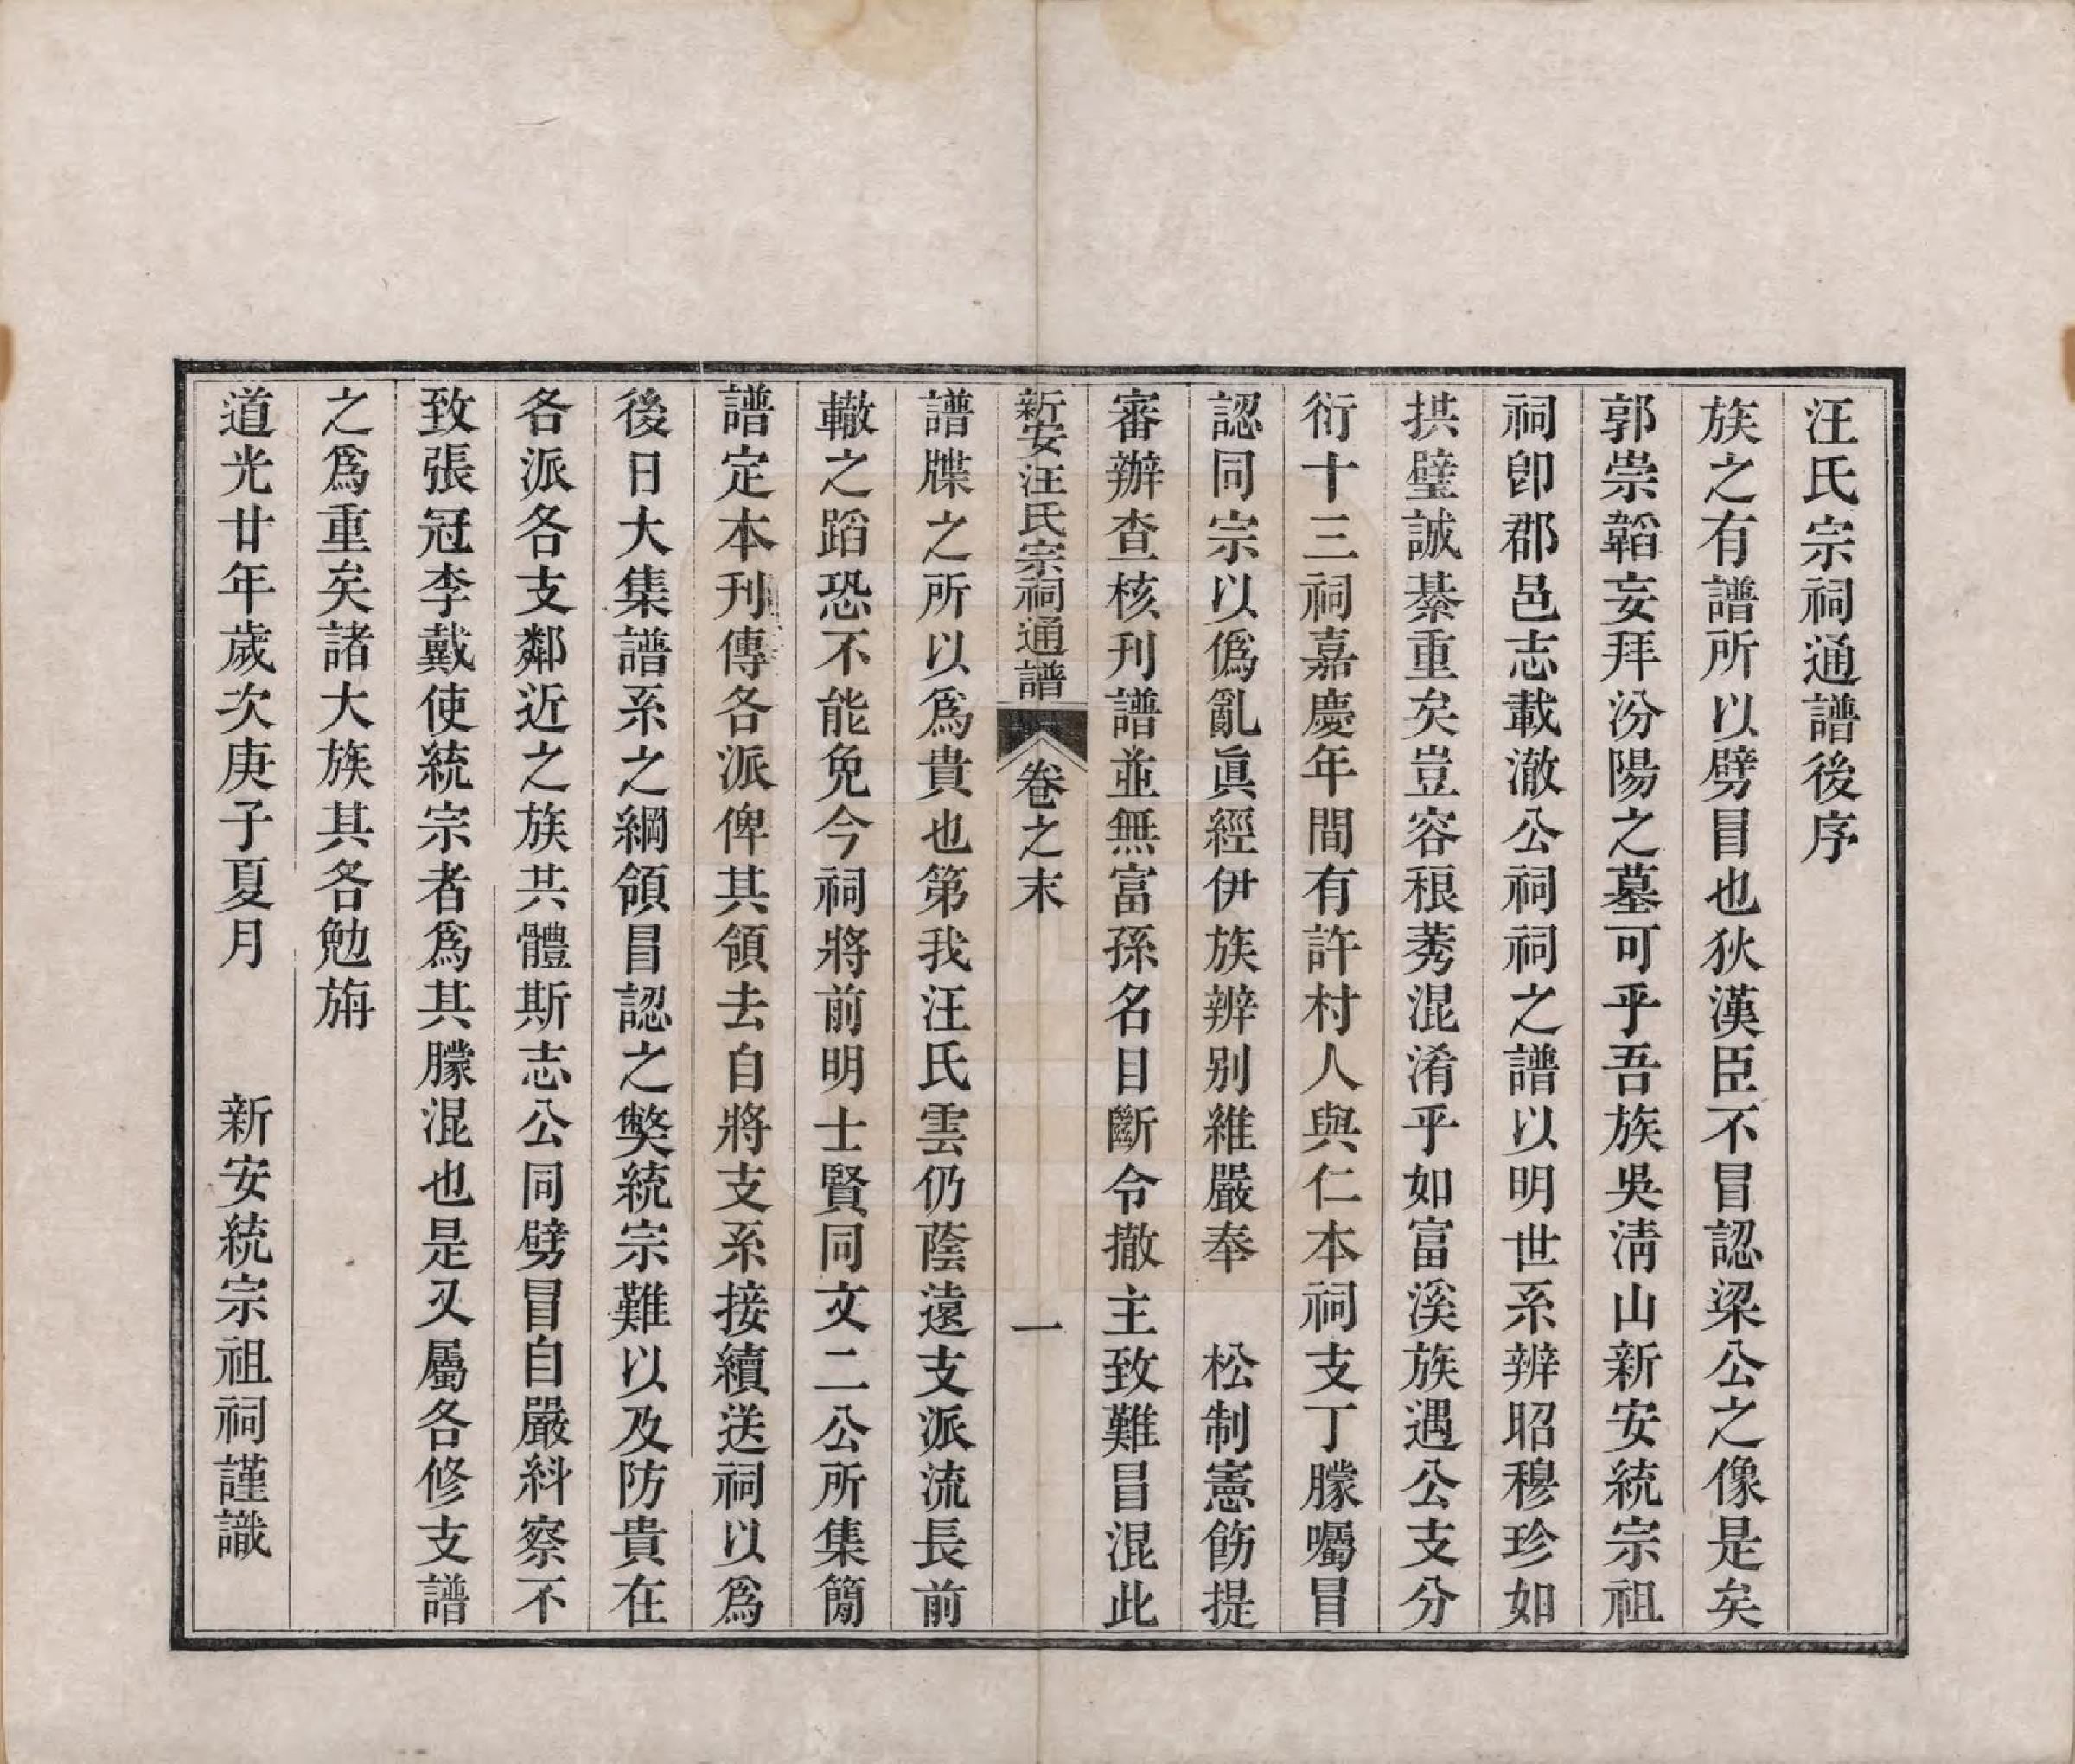 汪氏宗祠通譜後序
族之有譜所以劈冒也狄漢臣不冒認梁公之像是矣
郭崇韜妄拜汾陽之墓可乎吾族吳淸山新安統宗祖
祠卽郡邑志載澈公祠祠之譜以明世系辨昭穆珍如
拱璧誠綦重矣豈容稂莠混淆乎如富溪族遇公支分
衍十三祠嘉慶年間有許村人與仁本祠支丁朦囑冒
認同宗以僞亂眞經伊族辨别維嚴奉　松制憲飭提
審辦查核刊譜並無富孫名目斷令撤主致難冒混此
新安汪氏宗祠通譜　卷之末　一
譜牒之所以爲貴也第我汪氏雲仍蔭遠支派流長前
轍之蹈恐不能免今祠將前明士賢同文二公所集簡
譜定本刊傳各派俾其領去自將支系接續送祠以爲
後日大集譜系之綱領冒認之獘統宗難以及防貴在
各派各支鄰近之族共體斯志公同劈冒自嚴糾察不
致張冠李戴使統宗者爲其朦混也是又屬各修支譜
之爲重矣諸大族其各勉旃
道光廿年歲次庚子夏月　新安統宗祖祠謹識